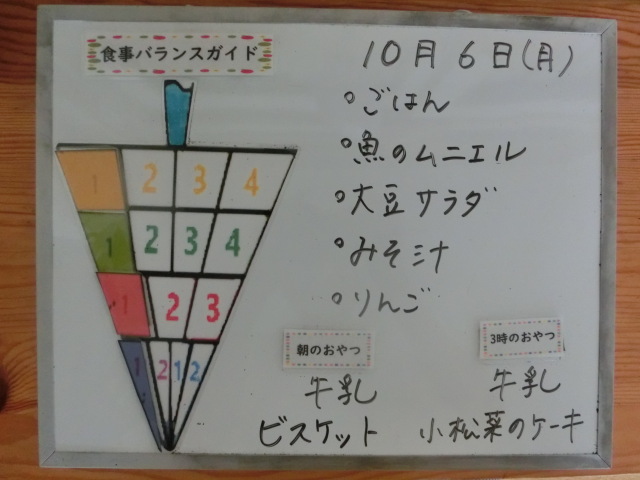 食事バランスガイド
10月6日(月)
1 2 3 4
1 2 3 4
1 2 3
1 2 1 2
ごはん
魚のムニエル
大豆サラダ
みそ汁
りんご
朝のおやつ
牛乳
ビスケット
3時のおやつ
牛乳
小松菜のケーキ